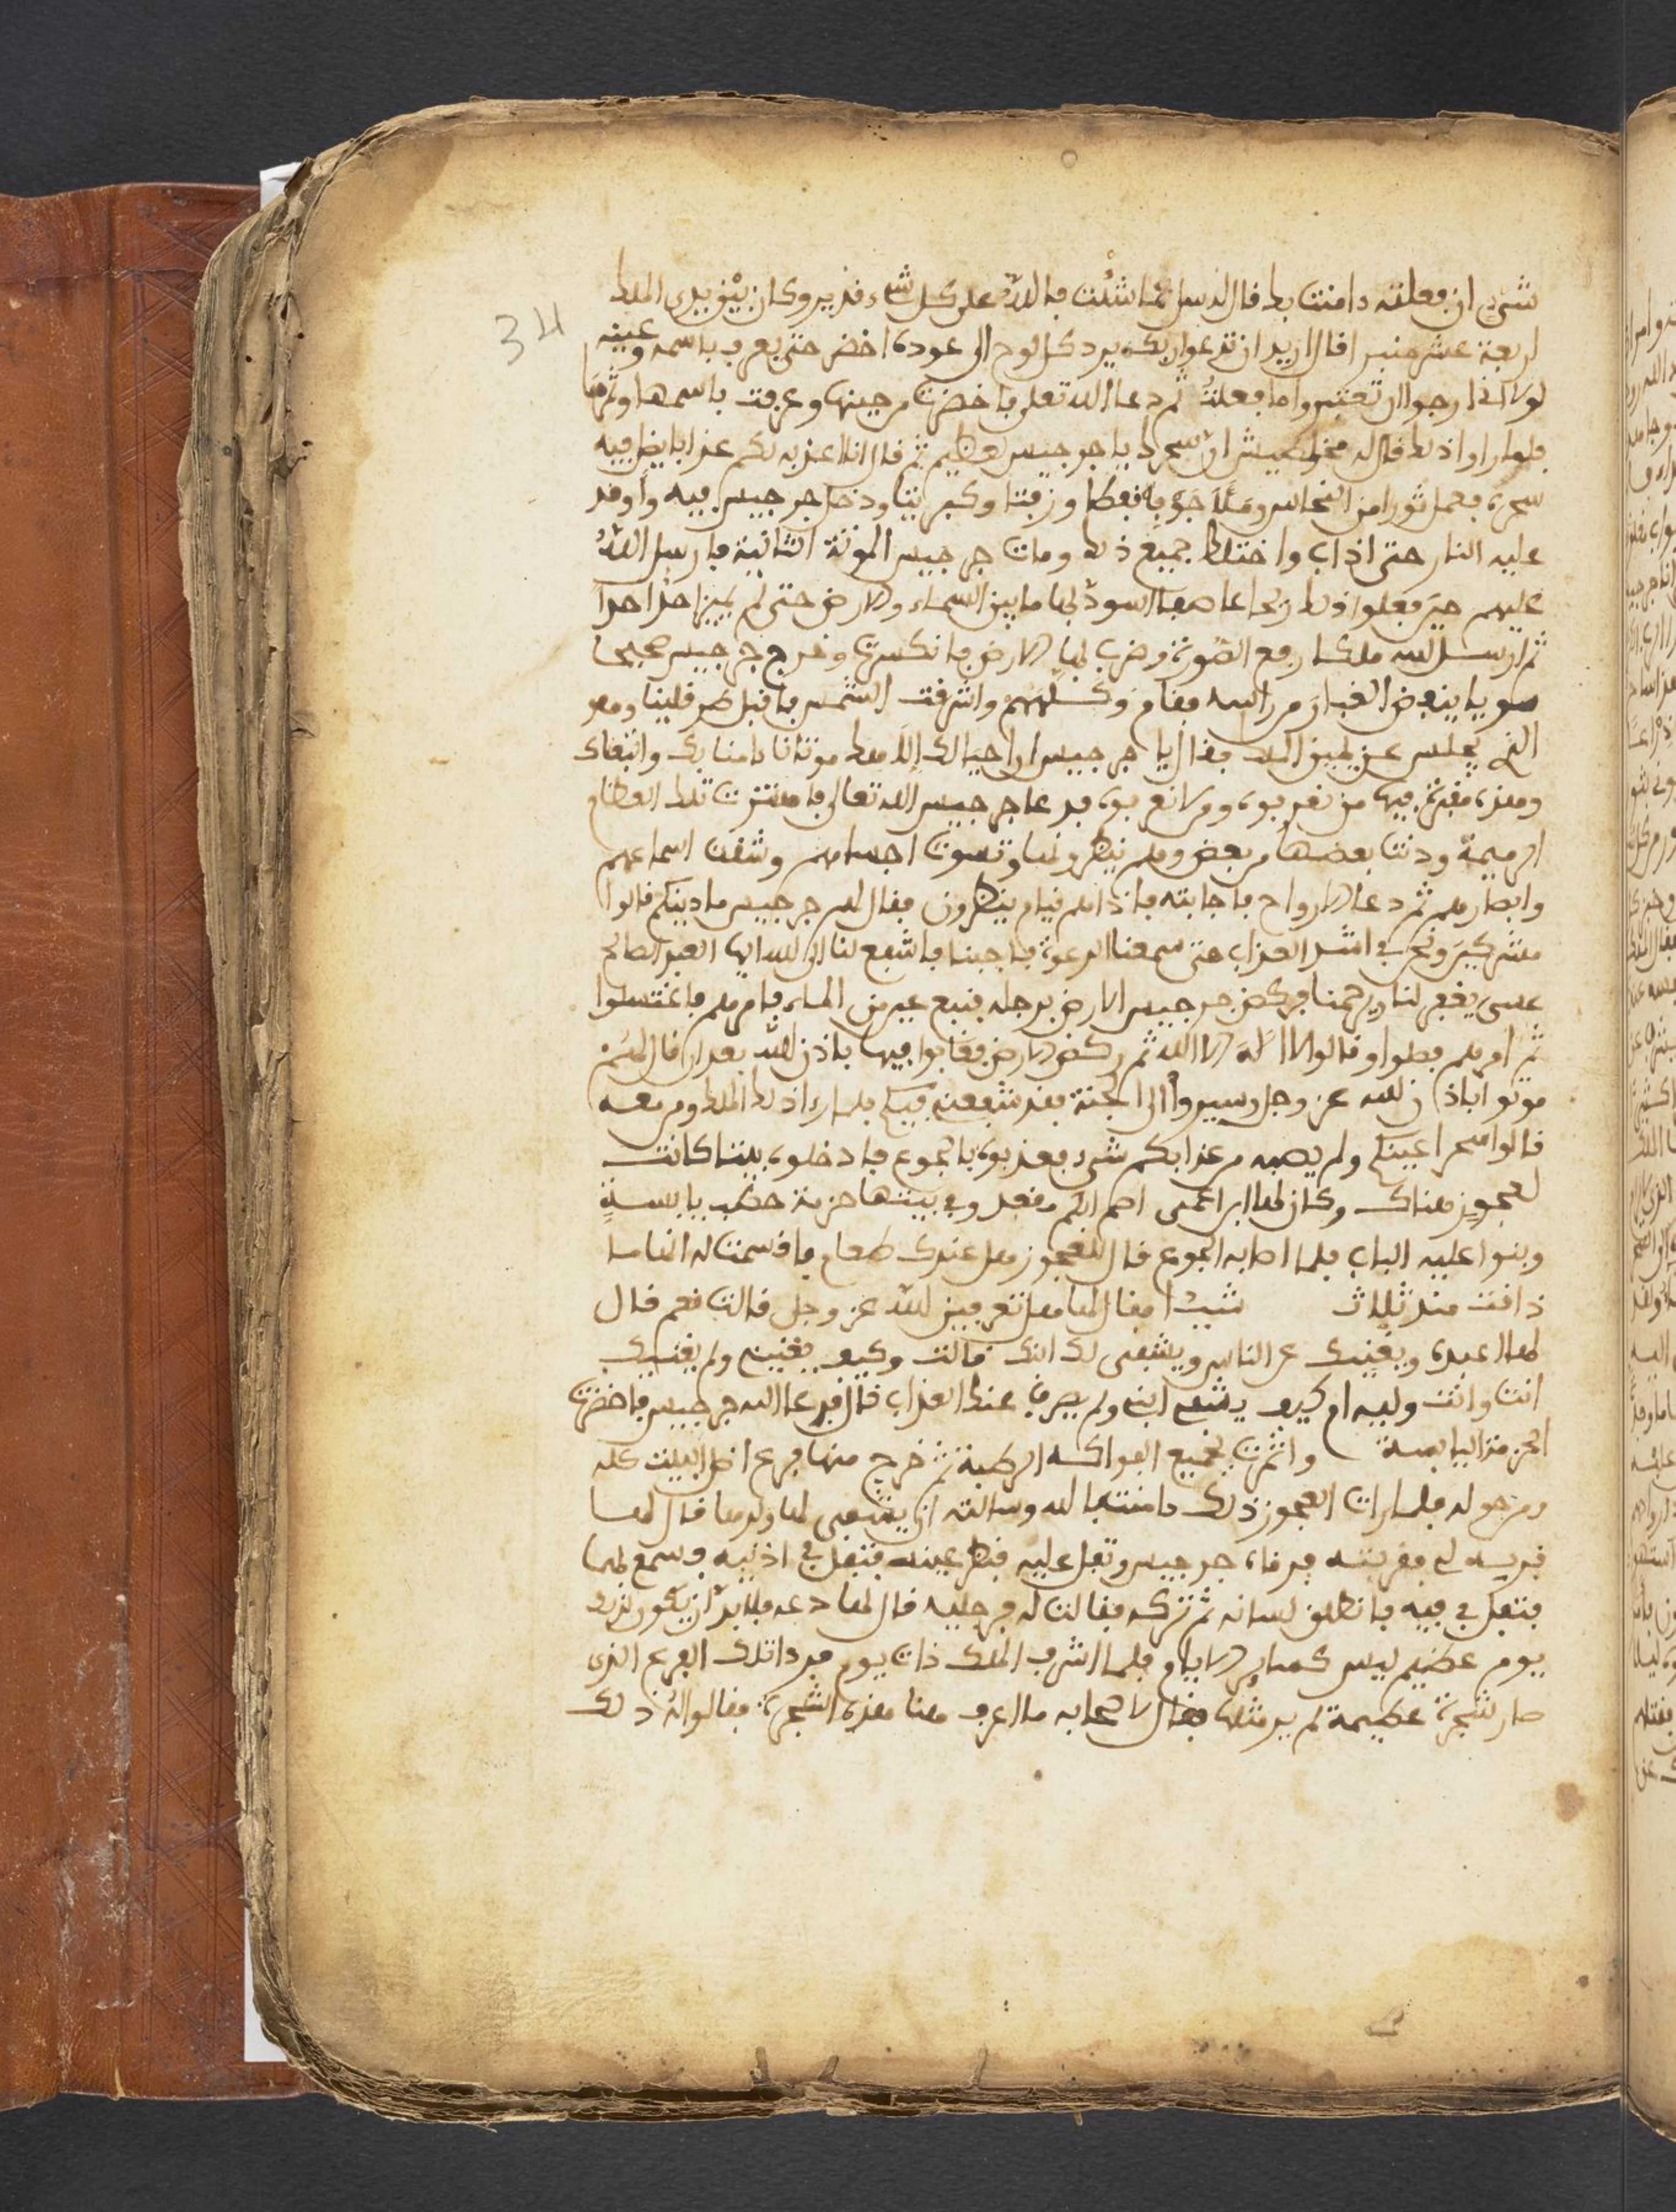 34
شيء ان فعلته ءامنت بك فال له سل عما شئت فالله على كل شيء فدير وكان بين يدي الملك
اربعة عشر منبرا فال اريد ان تدعوا ربك يرد كل لوح الى عوده اخضر حتى يعرف باسمه وعينه
لولا اني ارجوا ان تعتبروا ما فعلت ثم دعا الله تعلى فاخضرت من حينها وعرفت باسمها وثمرها
فلما راوا ذلك فال له ان سحرك يا جرجيس لعظيم ثم فال انا اعذبه لكم عذابا يضل فيه
سحره فعمل ثورا من النحاس وملأ جوفه نفطا وزفتا وكبريتا ودخل جرجيس فيه وأوفد
عليه النار حتى اذاب واختلط جميع ذلك ومات جرجيس الموتة الثانية فارسل الله
عليهم حين فعلوا ذلك ريحا عاصفا اسود لها ما بين السماء والارض حتى لم يميز احدا احدا
ثم ارسل الله ملكا رفع الصورة وضرب لها الارض فانكسرت وخرج جرجيس صحيحا
سويا ينفض الغبار من راسه ففام وكلمهم واشرفت الشمس فافبل طرفلينا وهو
الذي يجلس عن يمين الملك ففال يا جرجيس ان احيا لك إلاهك موتانا ءامنا بك واتبعناك
وهذه مفبرة فيها من نعرفوه ومن لا نعرفوه فدعا جرجيس الله تعالى فاهتزت تلك العظام
الرميمة ودنت بعضها من بعض وهم ينظرونها وتسوت اجسامهم وشفت اسماعهم
وابصارهم ثم دعا الارواح فاجابته فاذا هم فيام ينظرون ففال لهم جرجيس ما دينكم فالوا
مشركين ونحن في اشد العذاب حتى سمعنا الدعوة فاجبنا فاشفع لنا الى الله ايها العبد الصالح
عسى يغفر لنا ويرحمنا فركض جرجيس الارض برجله فنبع عين من الماء فامرهم فاغتسلوا
ثم امرهم فصلوا وفالوا لا الٓه الا الله ثم ركض الارض فغابوا فيها باذن الله بعد ان فال لهم
موتوا باذن الله عز وجل وسيروا الى الجنة فقد شفعني فيكم فلما رءا ذلك الملك ومن معه
فالوا سحر اعينكم ولم يصبه من عذابكم شيء فعذبوه بالجوع فادخلوه بيتا كانت
لعجوز هناك وكان لها ابن اعمى اصم ابكم مفعد وفي بيتها حزمة حطب يابسة
وبنوا عليه الباب فلما اصابه الجوع فال للعجوز هل عندك طعام فافسمت له انها ما
ذافت منذ ثلاث شيئا ففال لها هل تعرفين الله عز وجل فالت نعم فال
لها اعبده ويغنيك عن الناس ويشفى لك ابنك فالت وكيف يغنيني ولم يغنيك
انت وانت وليه ام كيف يشفي ابني ولم يصرف عنك العذاب فال فدعا الله جرجيس فاخضرت
الحزمة اليابسة واثمرت بجميع الفواكه الرطبة ثم خرج منها فرع اظل البيت كله
ومن حوله فلما رات العجوز ذلك ءامنت بالله وسالته ان يشفى لها ولدها فال لها
فربيه لي ففربته فرفاه جرجيس وتفل عليه فنظر عينه فتفل في اذنيه فسمع لهما
فتفل في فيه فانطلق لسانه ثم تركه ففالت له في رجليه فال لها دعه فلا بد ان يكون لذلك
يوم عظيم ليس كساير الايام فلما اشرف الملك ذات يوم فرءا تلك الفرع الذي
صار شجرة عظيمة لم ير مثلها ففال لاصحابه ما اعرف هنا هذه الشجرة ففالوا له ذلك